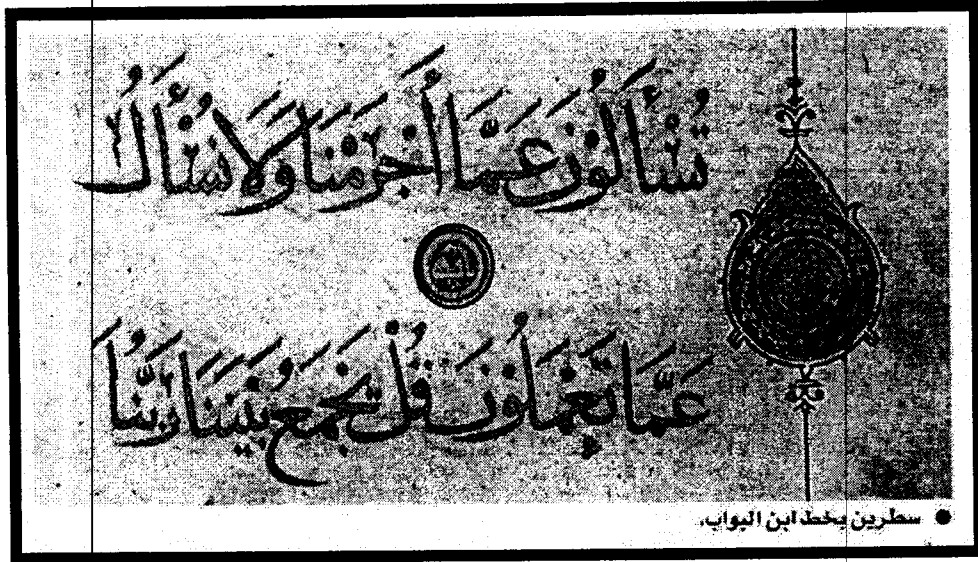 تُسْأَلُونَ عَمَّا أَجْرَمْنَا وَلَا نُسْأَلُ
عَمَّا تَعْمَلُونَ قُلْ يَجْمَعُ بَيْنَنَا رَبُّنَا
● سطرين بخط ابن البواب.